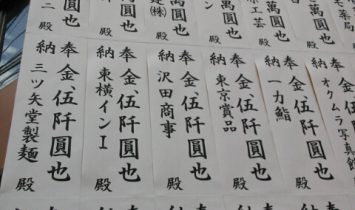 萬圓也
殿
建(株)
殿
萬圓也
殿
萬圓也
工芸
殿
萬圓也
殿
奉納
金、伍阡圓也
オクムラ写真館
奉納
金、伍阡圓也
一力鮨
殿
奉納
金、伍阡圓也
東京賞品
殿
奉納
金、伍阡圓也
沢田商事
殿
奉納
金、伍阡圓也
東横インI
殿
奉納
金、伍阡圓也
三ツ矢堂製麺
殿